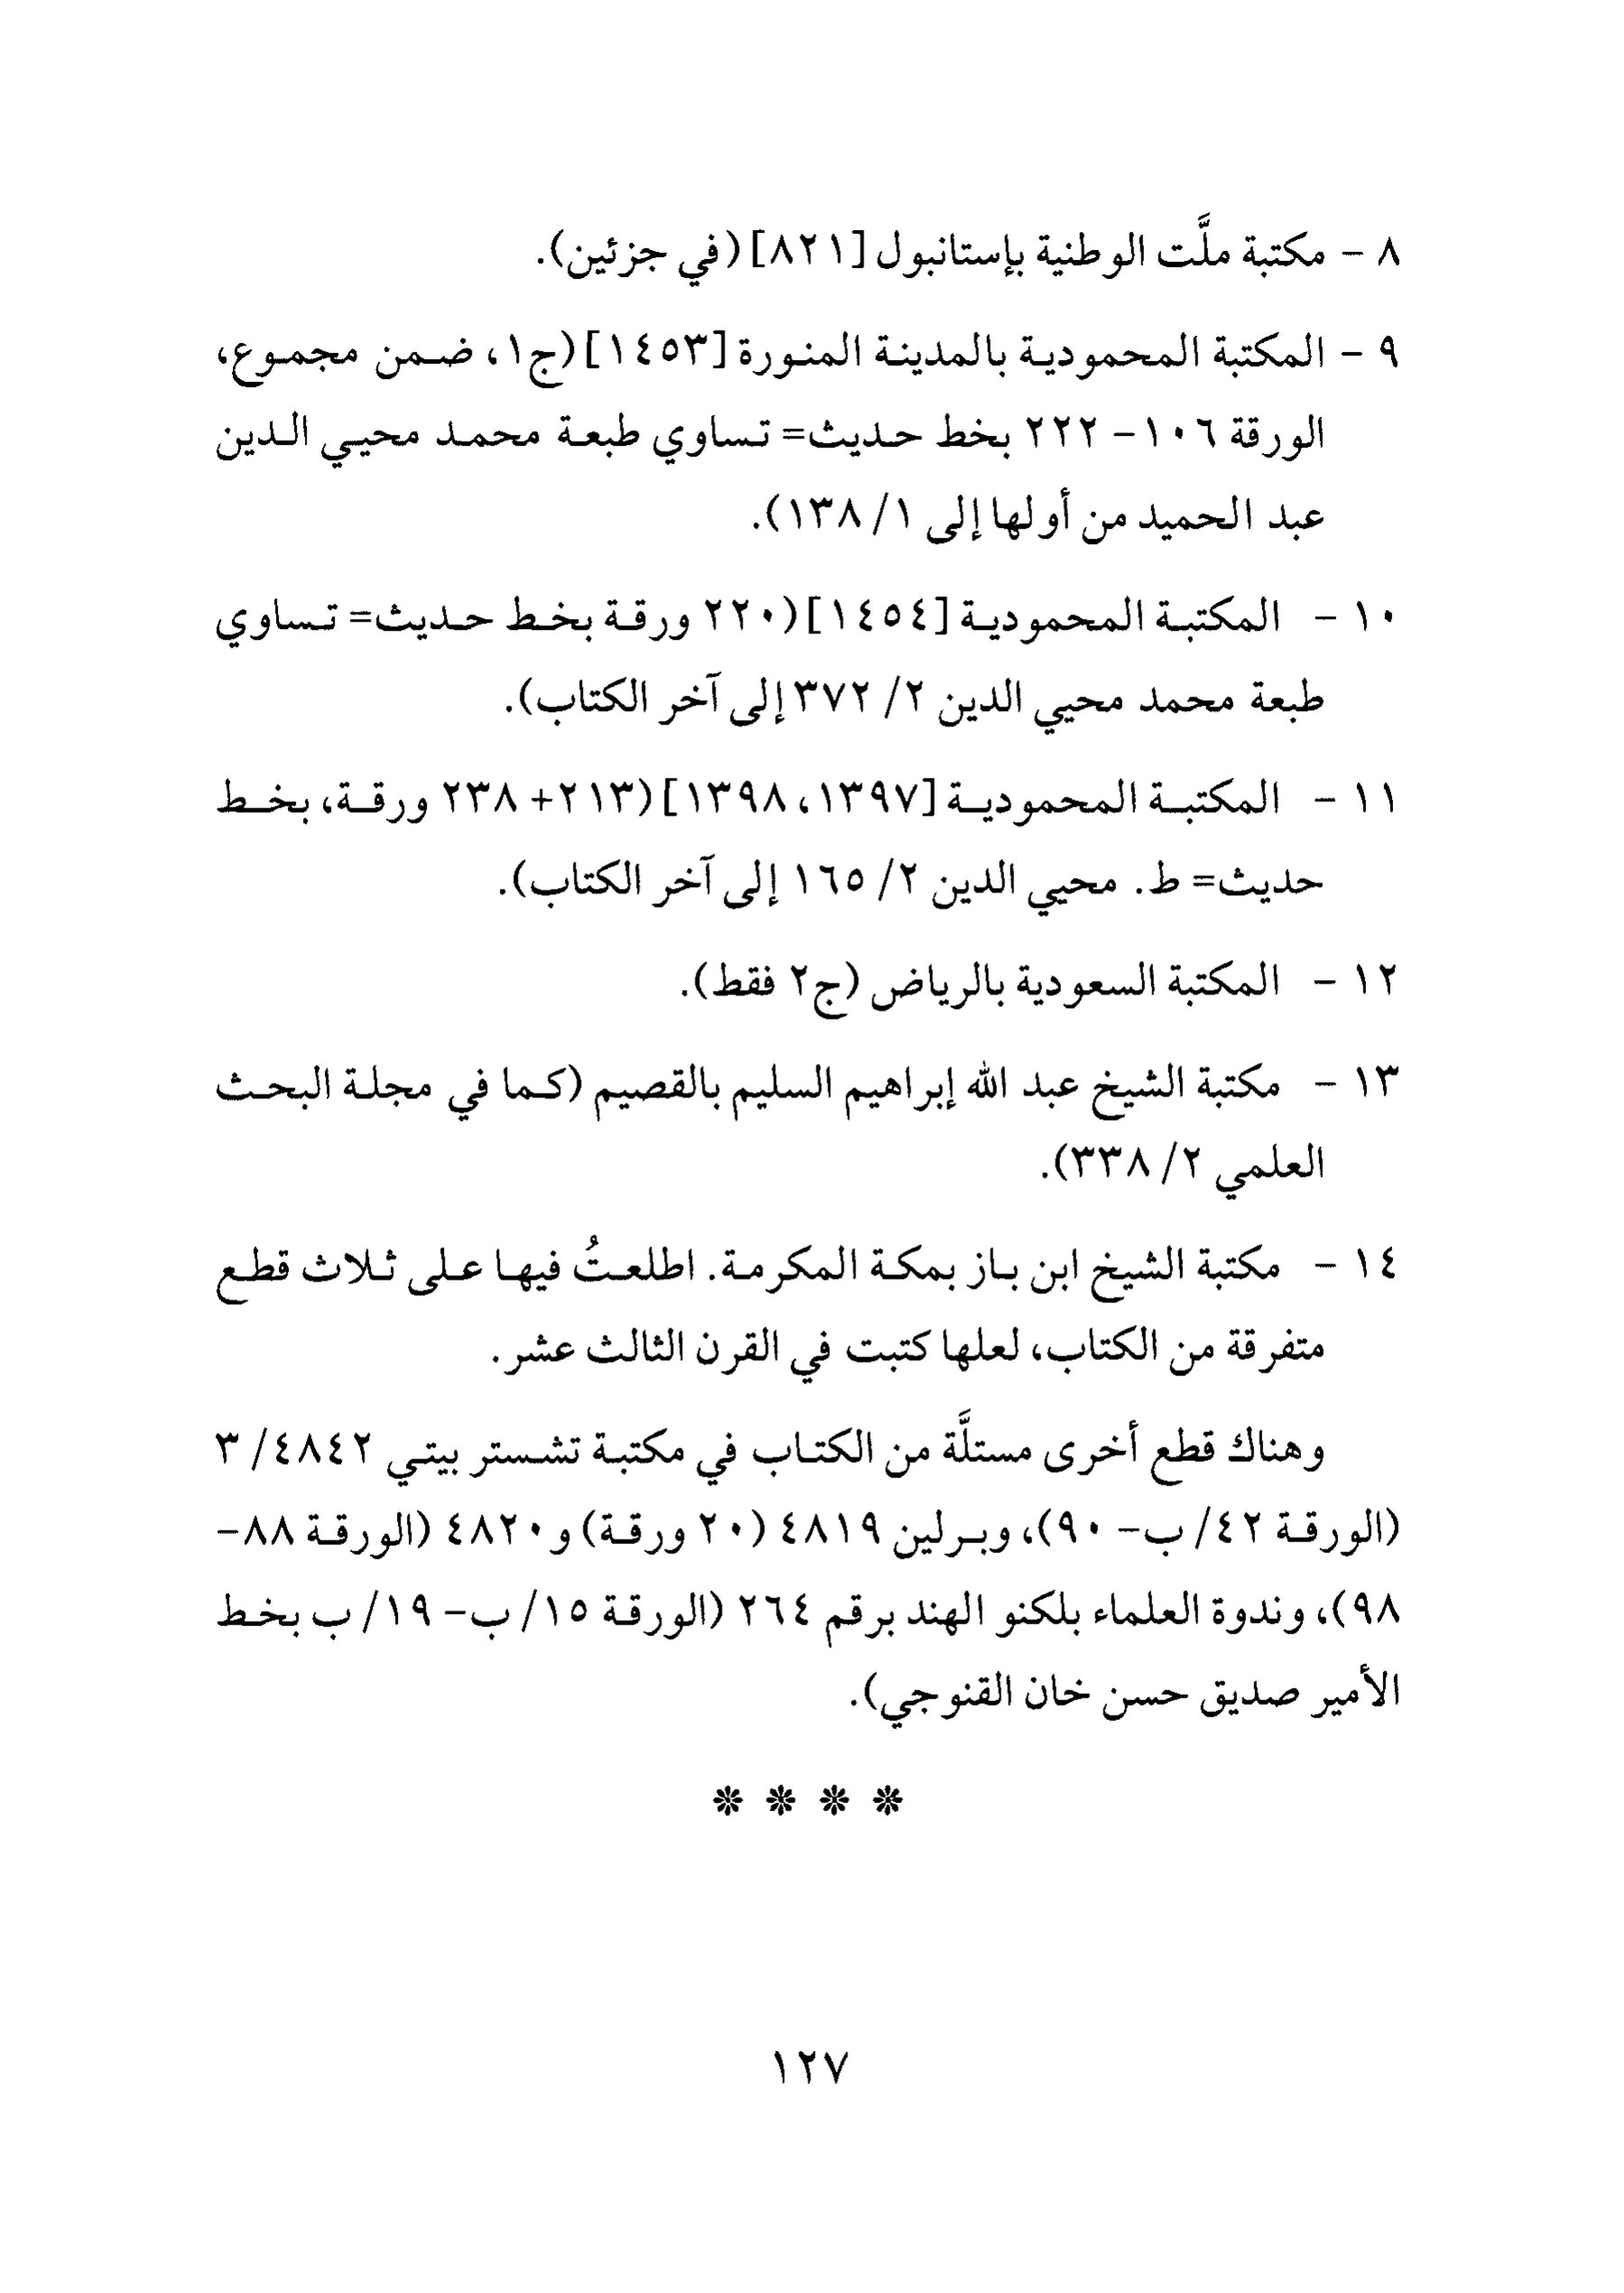 ٨ - مكتبة ملَّت الوطنية بإستانبول [٨٢١] (في جزئين).
٩ - المكتبة المحمودية بالمدينة المنورة [١٤٥٣] (ج١، ضمن مجموع،
الورقة ١٠٦- ٢٢٢ بخط حديث= تساوي طبعة محمد محيي الدين
عبد الحميد من أولها إلى ١/ ١٣٨).
١٠ - المكتبة المحمودية [١٤٥٤] (٢٢٠ ورقة بخط حديث= تساوي
طبعة محمد محيي الدين ٢/ ٣٧٢ إلى آخر الكتاب).
١١ - المكتبة المحمودية [١٣٩٧، ١٣٩٨] (٢١٣+ ٢٣٨ ورقة، بخط
حديث= ط. محيي الدين ٢/ ١٦٥ إلى آخر الكتاب).
١٢ - المكتبة السعودية بالرياض (ج٢ فقط).
١٣ - مكتبة الشيخ عبد الله إبراهيم السليم بالقصيم (كما في مجلة البحث
العلمي ٢/ ٣٣٨).
١٤ - مكتبة الشيخ ابن باز بمكة المكرمة. اطلعتُ فيها على ثلاث قطع
متفرقة من الكتاب، لعلها كتبت في القرن الثالث عشر.
وهناك قطع أخرى مستلَّة من الكتاب في مكتبة تشستر بيتي ٤٨٤٢/ ٣
(الورقة ٤٢/ ب- ٩٠)، وبرلين ٤٨١٩ (٢٠ ورقة) و٤٨٢٠ (الورقة ٨٨-
٩٨)، وندوة العلماء بلكنو الهند برقم ٢٦٤ (الورقة ١٥/ ب- ١٩/ ب بخط
الأمير صديق حسن خان القنوجي).
❊ ❊ ❊ ❊
١٢٧